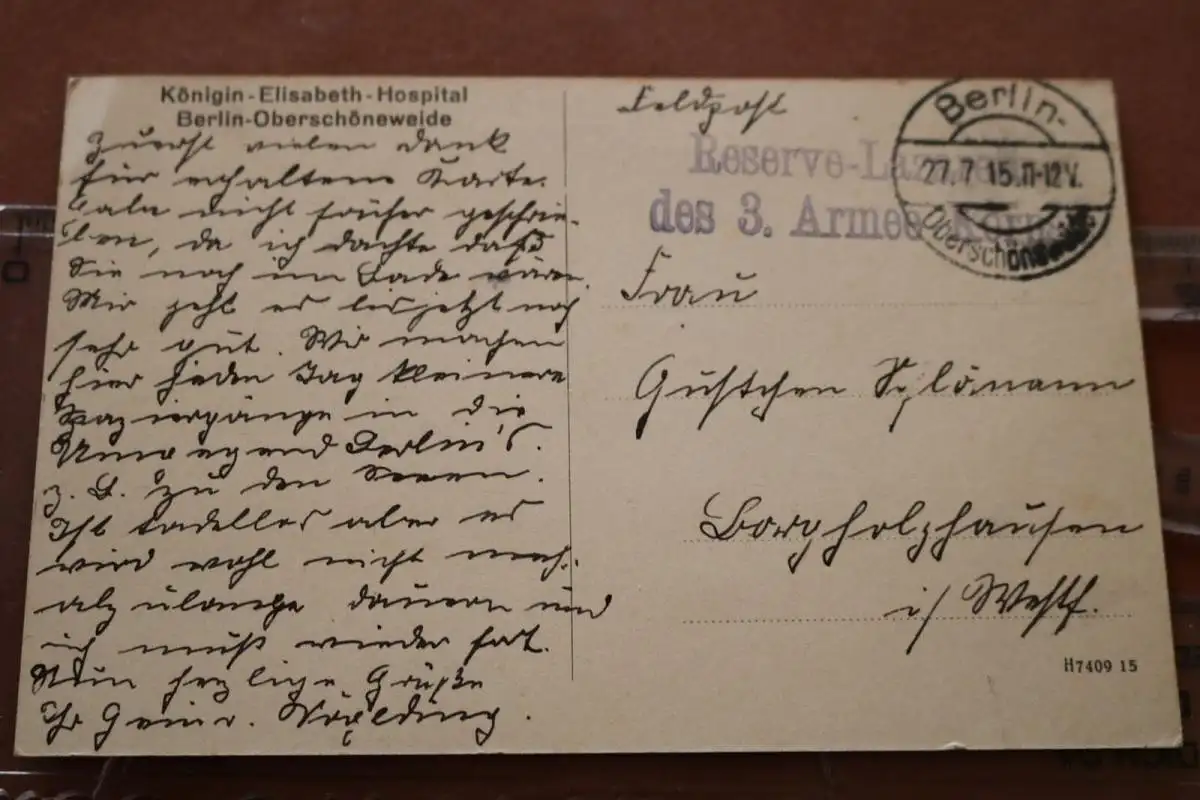 Königin-Elisabeth-Hospital
Berlin-Oberschöneweide
Zuerst vielen Dank
für erhaltene Karte.
nicht früher geschrie-
ben, da ich dachte daß
Sie noch im Bade wären.
Mir geht es bis jetzt noch
sehr gut. Wir machen
hier jeden Tag kleinere
Spaziergänge in die
Umgegend Berlin's.
z. B. zu den Seen.
Ist tadellos aber es
wird wohl nicht mehr
alzulange dauern und
ich muß wieder fort.
Nun herzlige Grüße
Ihr
Feldpost
Reserve-Lazarett
des 3. Armee-Korps
Berlin-
27.7 15.11-12V.
Oberschöneweide
Frau
Gustchen
Borgholzhausen
i/ Westf.
H7409 15